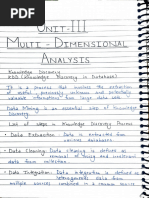 UNIT-III
MULTI-DIMENSIONAL
ANALYSIS
Knowledge Discovery
KDD (Knowledge Discovery in Database)
It is a process that involves the extraction
of useful, previously unknown and potentially
valuable information from large data sets.
Data Mining is an essential step of Knowledge
Discovery.
List of steps in Knowledge Discovery Process
• Data Extraction - Data is extracted from
various databases
• Data Cleaning - Data cleaning is defined as
removal of noisy and irrelevant
data from collection
• Data Integration - Data integration is defined as
heterogeneous data from
multiple sources combined in a common source